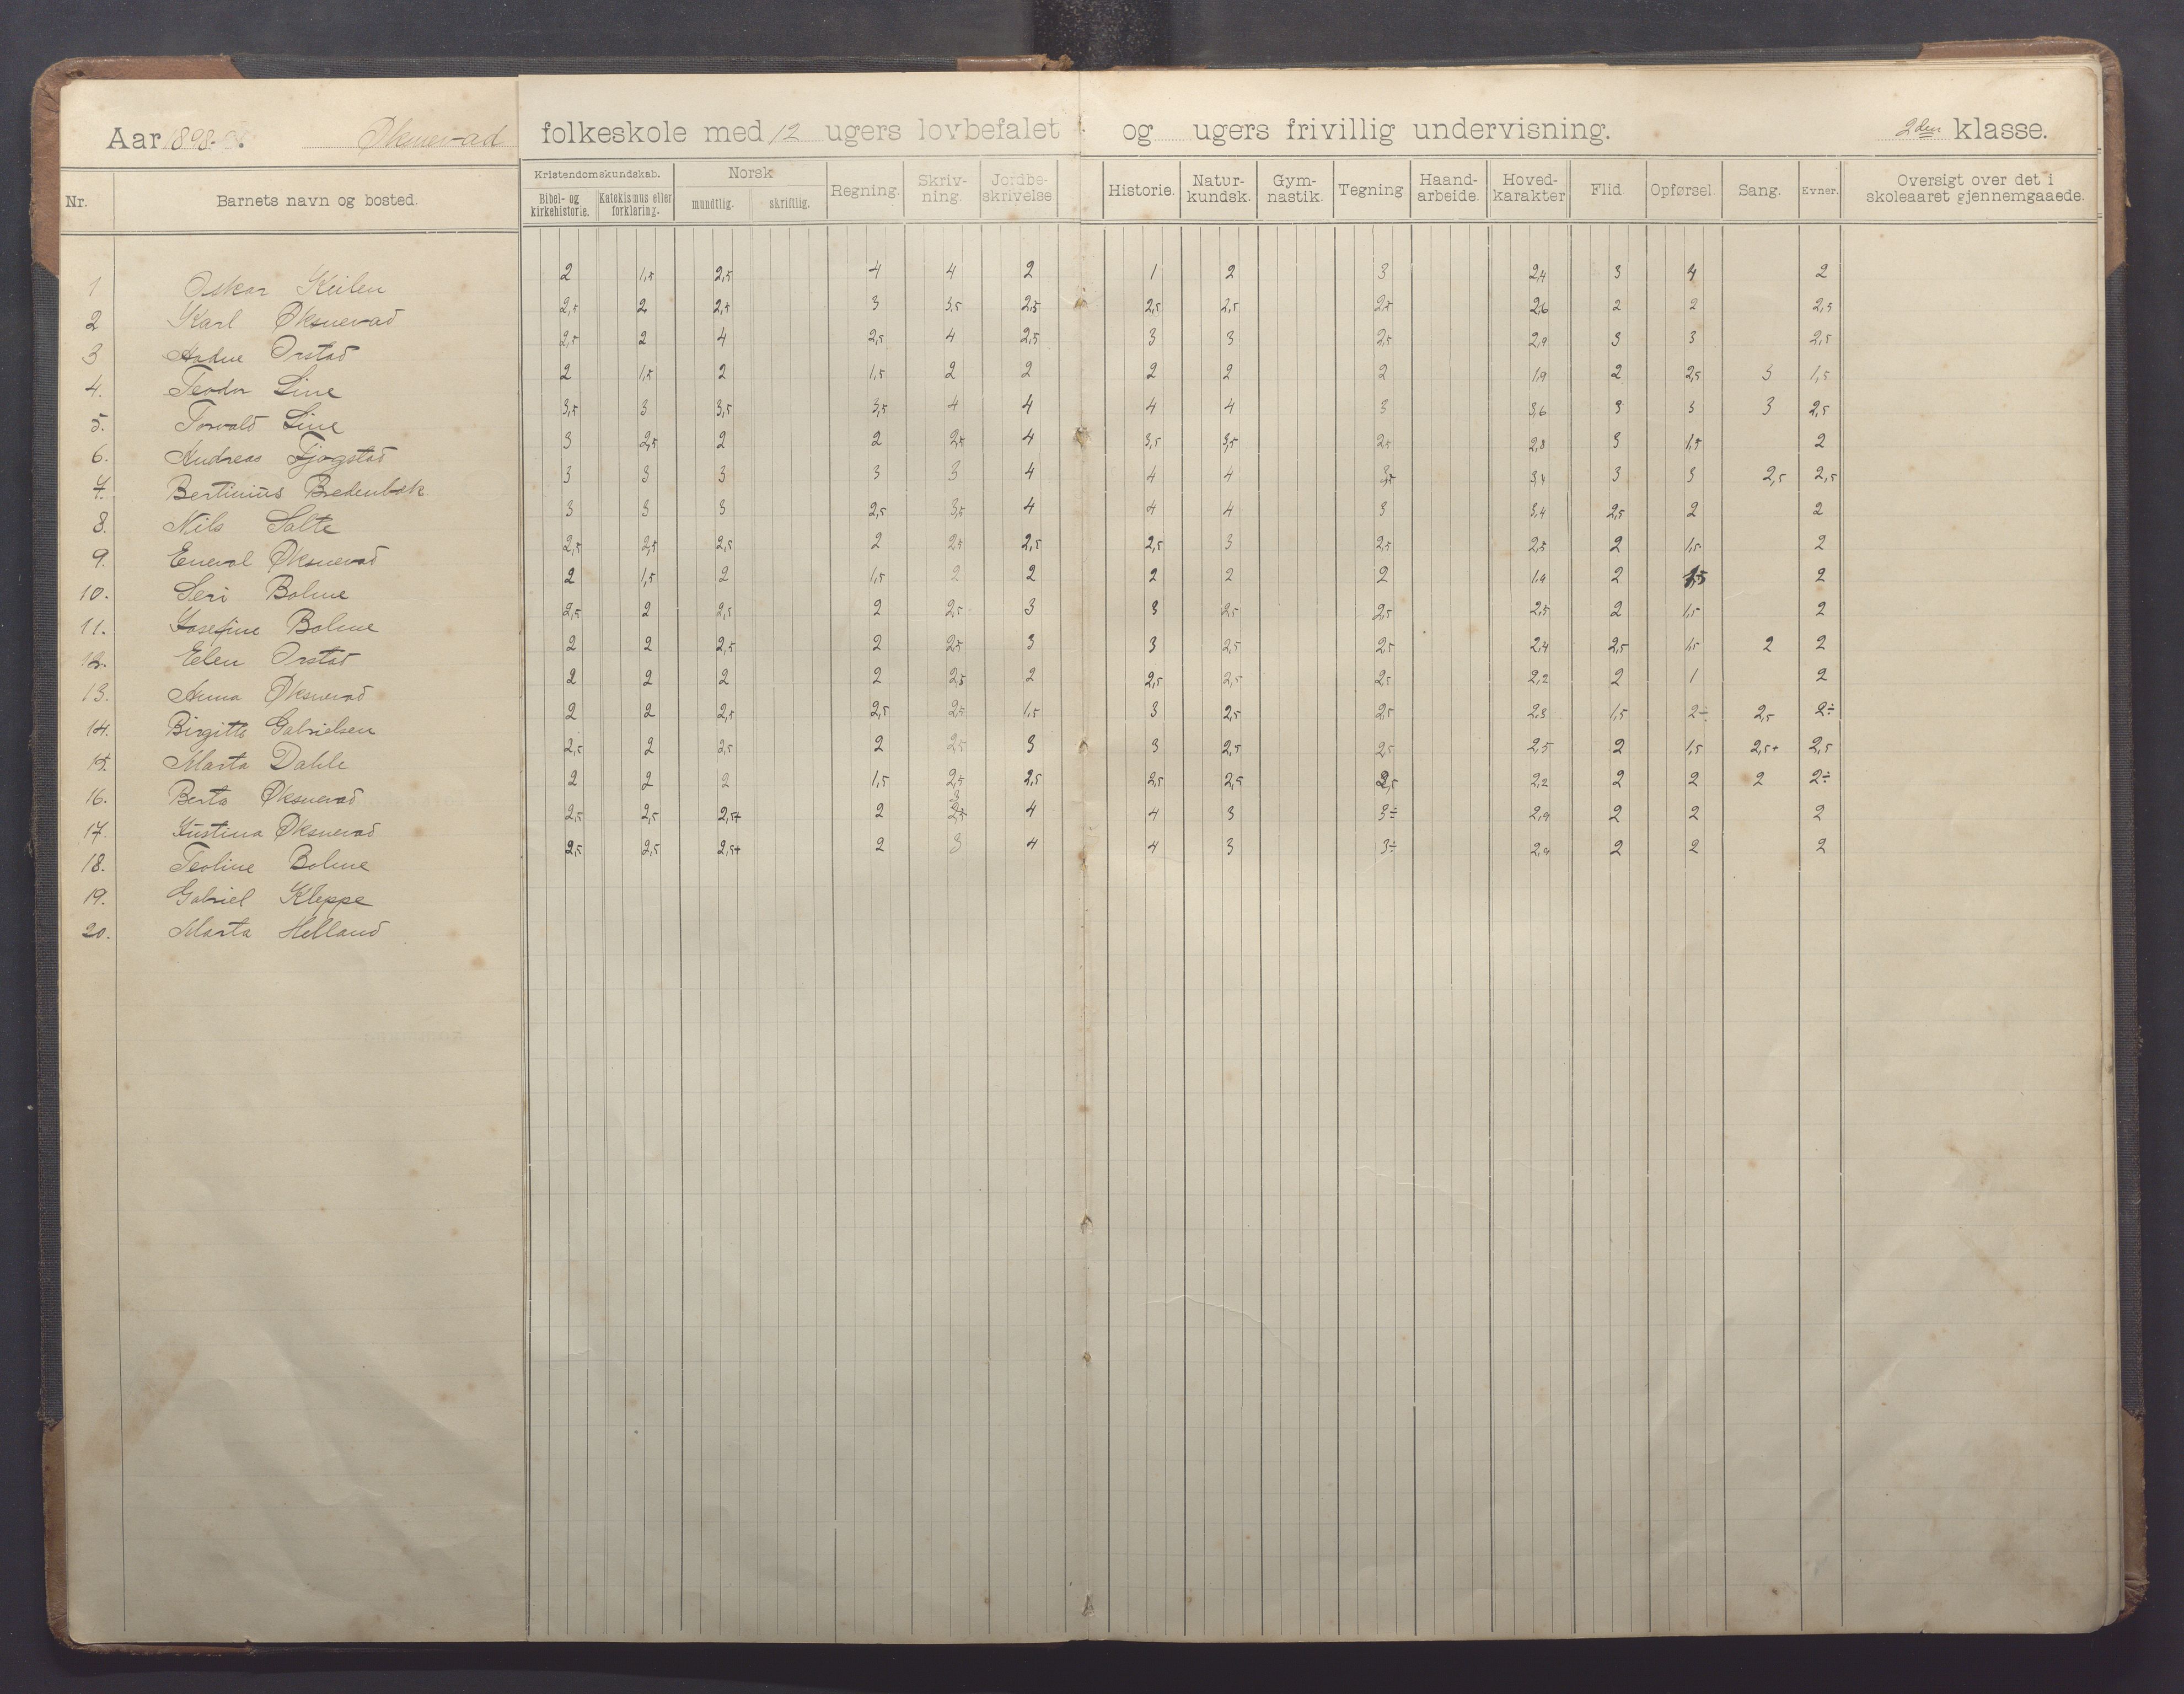 Aar 1898- Øksnevad folkeskole med 12 ugers lovbefalet og ugers frivillig undervisning. 2den klasse.
Nr. Barnets navn og bosted. Kristendomskundskab. Bibel- og kirkehistorie. Katekismus eller forklaring. Norsk mundtlig. skriftlig. Regning. Skriv-ning. Jordbe-skrivelse Historie. Natur-kundsk. Gym-nastik. Tegning Haand-arbeide. Hoved-karakter Flid Opførsel. Sang. Evner. Oversigt over det i skoleaaret gjennemgaaede.
1 Oskar 2 1,5 2,5 4 4 2 1 2 3 2,4 3 4 2
2 Karl Øksnevad 2,5 2 2,5 3 3,5 2,5 2,5 2,5 2,5 2,6 2 2 2,5
3 Aadne Orstad 2,5 2 4 2,5 4 2,5 3 3 2,5 2,9 3 3 2,5
4. Teodor Line 2 1,5 2 1,5 2 2 2 2 2 1,9 2 2,5 3 1,5
5. Torvald Line 3,5 3 3,5 3,5 4 4 4 4 3 3,6 3 3 3 2,5
6. Andreas Fjogstad 3 2,5 2 2 2,5 4 3,5 3,5 2,5 2,8 3 1,5 2
7. Bertinius Bredenbek 3 3 3 3 3 4 4 4 3,5 3,4 3 3 2,5 2,5
8. Nils Salte 3 3 3 2,5 3,5 4 4 4 3 3,4 2,5 2 2
9. Eneval Øksnevad 2,5 2,5 2,5 2 2,5 2,5 2,5 3 2,5 2,5 2 1,5 2
10. Seri Bolme 2 1,5 2 1,5 2 2 2 2 2 1,9 2 1,5 2
11. Josefine Bolme 2,5 2 2,5 2 2,5 3 3 2,5 2,5 2,5 2 1,5 2
12. Elen Orstad 2 2 2,5 2 2,5 3 3 2,5 2,5 2,4 2,5 1,5 2 2
13. Anna Øksnevad 2 2 2 2 2,5 2 2,5 2,5 2,5 2,2 2 1 2
14. Birgitte Gabrielsen 2 2 2,5 2,5 2,5 1,5 3 2,5 2,5 2,3 1,5 2÷ 2,5 2÷
15. Marta Dahle 2,5 2 2,5 2 2,5 3 3 2,5 2,5 2,5 2 1,5 2,5+ 2,5
16. Berta Øksnevad 2 2 2 1,5 2,5 2,5 2,5 2,5 2,5 2,2 2 2 2 2÷
17. Kristina Øksnevad 2,5 2,5 2,5+ 2 3 2,5 4 4 3 3÷ 2,9 2 2 2
18. Teoline Bolme 2,5 2,5 2,5+ 2 3 4 4 3 3÷ 2,9 2 2 2
19. Gabriel Kleppe
20. Marta Helland